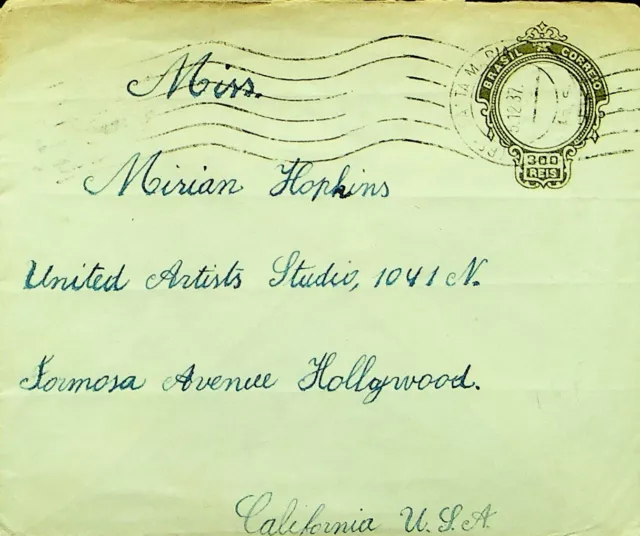 BRASIL CORREIO
12.37.
300
REIS
Miss.
Mirian Hopkins
United Artists Studio, 1041 N.
Formosa Avenue Hollywood.
California U.S.A.